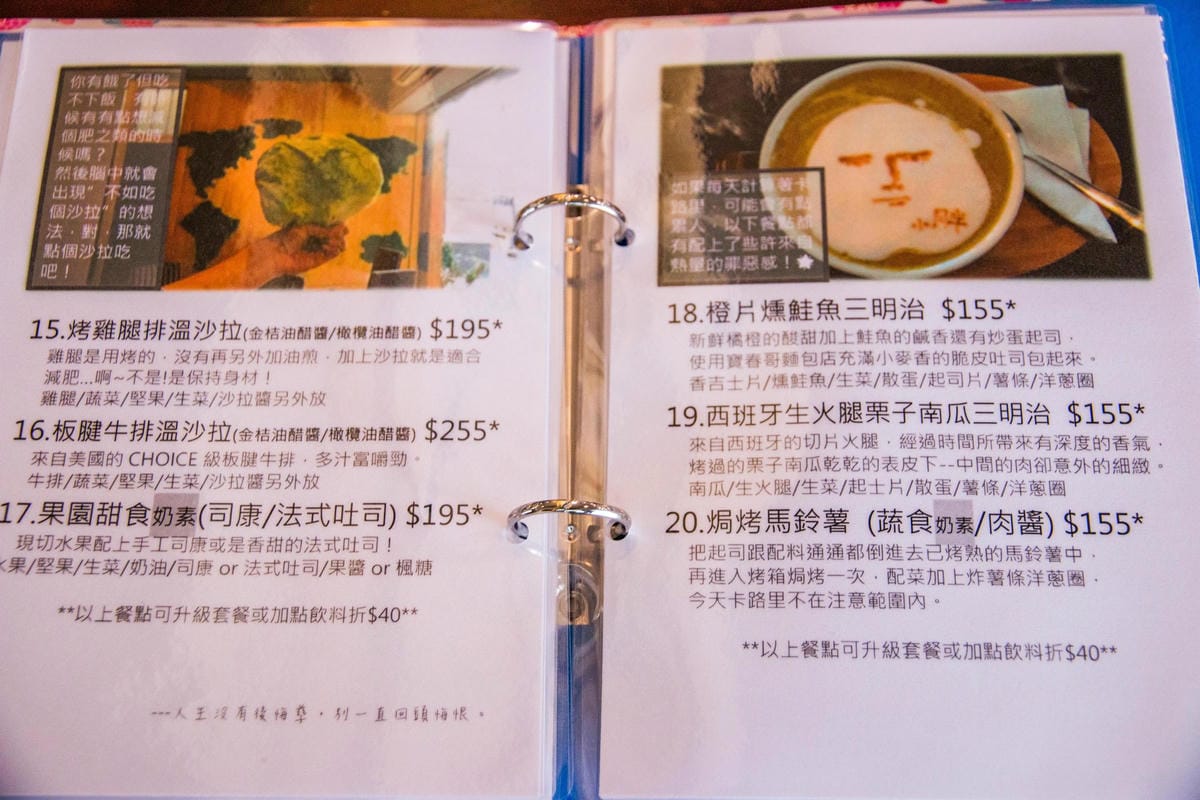 你有餓了但吃
不下飯，有時
候有有點想減
個肥之類的時
候嗎？
然後腦中就會
出現"不如吃
個沙拉"的想
法，對，那就
點個沙拉吃
吧！
15.烤雞腿排溫沙拉(金桔油醋醬/橄欖油醋醬) $195*
雞腿是用烤的，沒有再另外加油煎，加上沙拉就是適合
減肥...啊~不是!是保持身材！
雞腿/蔬菜/堅果/生菜/沙拉醬另外放
16.板腱牛排溫沙拉(金桔油醋醬/橄欖油醋醬) $255*
來自美國的 CHOICE 級板腱牛排，多汁富嚼勁。
牛排/蔬菜/堅果/生菜/沙拉醬另外放
17.果園甜食奶素(司康/法式吐司) $195*
現切水果配上手工司康或是香甜的法式吐司！
水果/堅果/生菜/奶油/司康 or 法式吐司/果醬 or 楓糖
**以上餐點可升級套餐或加點飲料折$40**
---人生沒有後悔藥，別一直回頭悔恨。
如果每天計算著卡
路里，可能會有點
累人，以下餐點都
有配上了些許來自
熱量的罪惡感！★
18.橙片燻鮭魚三明治 $155*
新鮮橘橙的酸甜加上鮭魚的鹹香還有炒蛋起司，
使用寶春哥麵包店充滿小麥香的脆皮吐司包起來。
香吉士片/燻鮭魚/生菜/散蛋/起司片/薯條/洋蔥圈
19.西班牙生火腿栗子南瓜三明治 $155*
來自西班牙的切片火腿，經過時間所帶來有深度的香氣，
烤過的栗子南瓜乾乾的表皮下--中間的肉卻意外的細緻。
南瓜/生火腿/生菜/起士片/散蛋/薯條/洋蔥圈
20.焗烤馬鈴薯 (蔬食奶素/肉醬) $155*
把起司跟配料通通都倒進去已烤熟的馬鈴薯中，
再進入烤箱焗烤一次，配菜加上炸薯條洋蔥圈，
今天卡路里不在注意範圍內。
**以上餐點可升級套餐或加點飲料折$40**